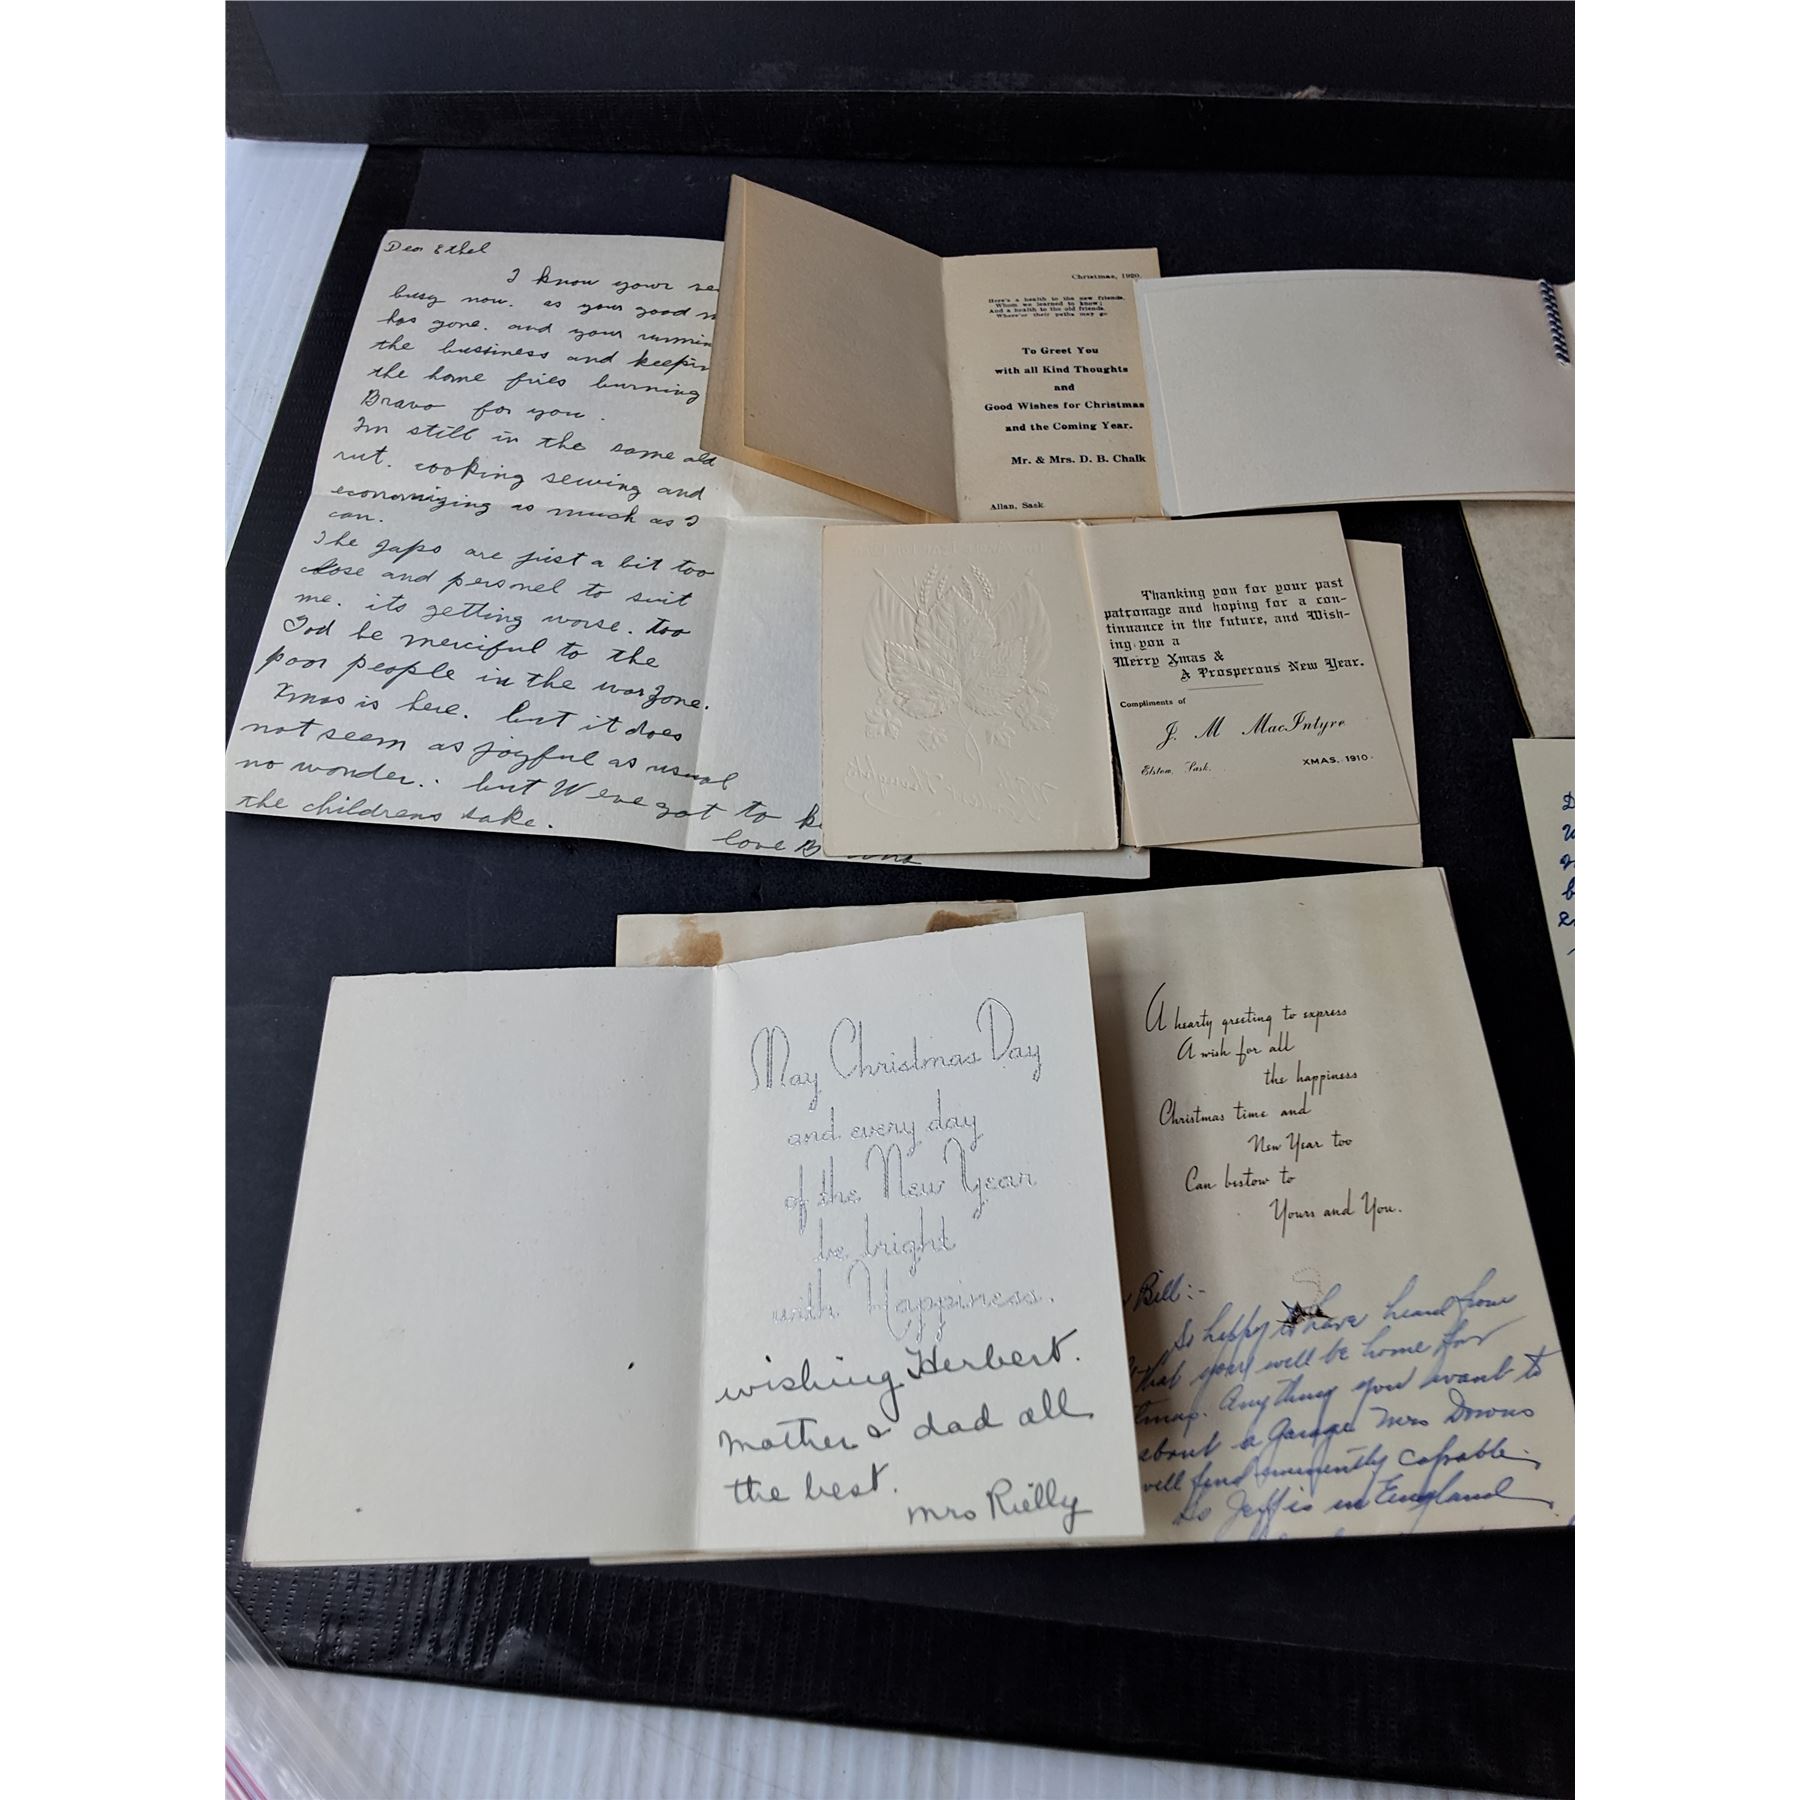 Dear Ethel
I know your
busy now. as your good
has gone. and your
the bussiness and
the home fires burning
Bravo for you.
Im still in the same old
rut. cooking sewing and
economizing as much as I
can.
The Japs are just a bit too
close and personel to suit
me. its getting worse. too
God be merciful to the
poor people in the war zone.
Xmas is here. but it does
not seem as joyful as usual
no wonder. but Weve got to
the childrens sake.
love
Christmas, 1920.
Here's a health to the new friends,
Whom we learned to know;
And a health to the old friends,
Where'er their paths may go
To Greet You
with all Kind Thoughts
and
Good Wishes for Christmas
and the Coming Year.
Mr. & Mrs. D. B. Chalk
Allan, Sask.
Thanking you for your past
patronage and hoping for a con-
tinuance in the future, and Wish-
ing you a
Merry Xmas &
A Prosperous New Year.
Compliments of
J. M MacIntyre
Elstow, Sask.
XMAS. 1910.
May Christmas Day
and every day
of the New Year
be bright
with Happiness.
wishing Herbert.
mother & dad all
the best.
Mrs Rielly
A hearty greeting to express
A wish for all
the happiness
Christmas time and
New Year too
Can bestow to
Yours and You.
Bill:-
So happy to have heard from
that you will be home for
Anything you want to
about a Garage Mrs Downs
will find eminently capable.
So Jeff is in England